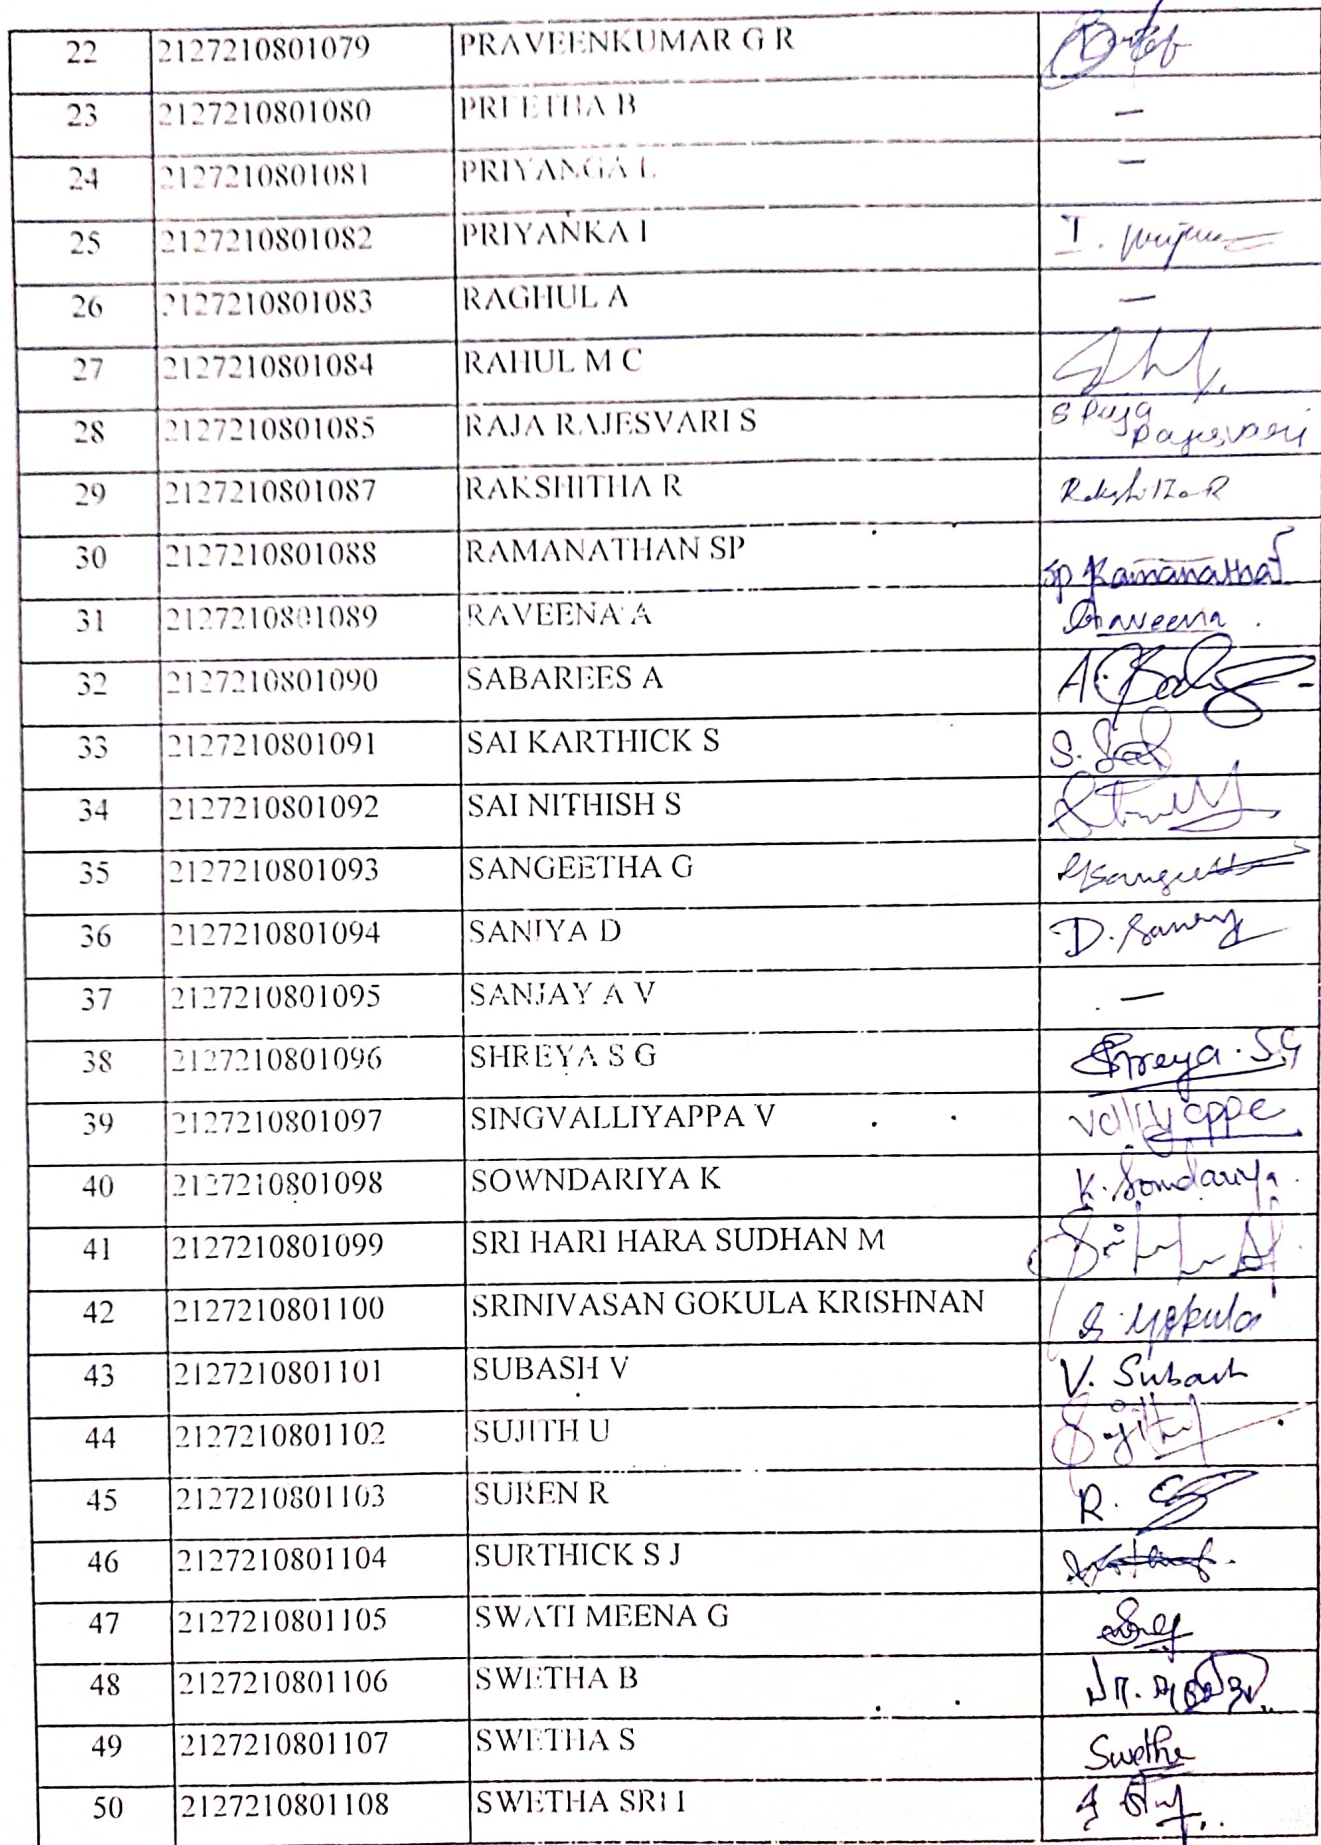 22 2127210801079 PRAVEENKUMAR G R
23 2127210801080 PREETHA B —
24 2127210801081 PRIYANGA L —
25 2127210801082 PRIYANKA I I.
26 2127210801083 RAGHUL A —
27 2127210801084 RAHUL M C
28 2127210801085 RAJA RAJESVARI S S Raja Rajesvari
29 2127210801087 RAKSHITHA R Rakshitha R
30 2127210801088 RAMANATHAN SP SP Ramanathan
31 2127210801089 RAVEENA A Raveena
32 2127210801090 SABAREES A A.
33 2127210801091 SAI KARTHICK S S.
34 2127210801092 SAI NITHISH S
35 2127210801093 SANGEETHA G
36 2127210801094 SANIYA D D.
37 2127210801095 SANJAY A V —
38 2127210801096 SHREYA S G Shreya. S G
39 2127210801097 SINGVALLIYAPPA V Valliyappa
40 2127210801098 SOWNDARIYA K K.
41 2127210801099 SRI HARI HARA SUDHAN M
42 2127210801100 SRINIVASAN GOKULA KRISHNAN S. Gokula
43 2127210801101 SUBASH V V. Subash
44 2127210801102 SUJITH U Sujith
45 2127210801103 SUREN R R.
46 2127210801104 SURTHICK S J
47 2127210801105 SWATI MEENA G
48 2127210801106 SWETHA B
49 2127210801107 SWETHA S Swetha
50 2127210801108 SWETHA SRI I